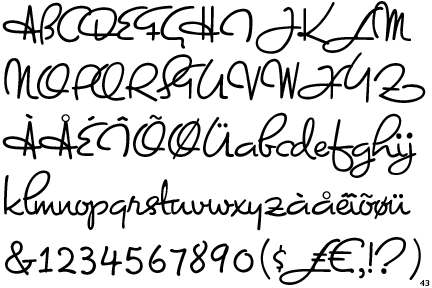 ABCDEFGHIJKLM
NOPQRSTUVWXYZ
ÀÅÉÎÕØÜabcdefghij
klmnopqrstuvwxyzàåéîõøü
&1234567890($£€,!?)
43